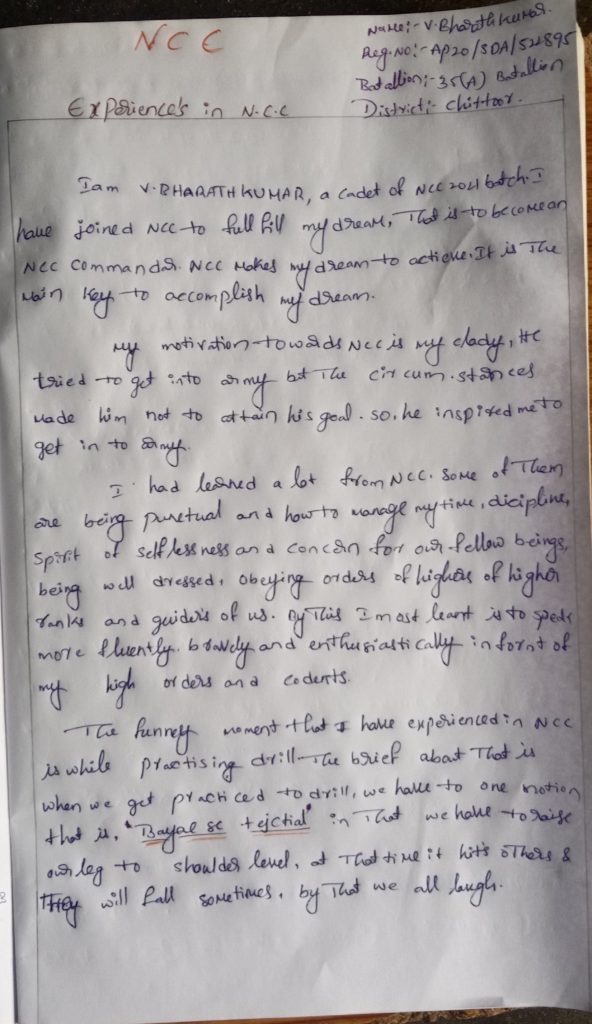 NCC
Name:- V. Bharath Kumar.
Reg. No:- AP20/SDA/521895
Batallion:- 35(A) Batallion
District:- Chittoor.
Experience's in N.C.C
I am V. BHARATH KUMAR, a cadet of NCC 2021 batch. I
have joined NCC to full fill my dream, That is to become an
NCC commandar. NCC Makes my dream to actieve. It is The
Main key to accomplish my dream.
My motivation towards NCC is my dady, He
tried to get into army bt The circum.stances
Made him not to attain his goal. so, he inspired me to
get in to army.
I had learned a lot from NCC. Some of Them
are being punctual and how to manage my time, dicipline,
spirit of selflessness and concern for our fellow beings,
being well dressed, obeying orders of highers of higher
ranks and guiders of us. By This I most learnt is to speak
more fluently. bravely and enthusiastically in fornt of
my high orders and coderts.
The funney moment that I have experienced in NCC
is while practising drill The brief about That is
when we get practiced to drill, we have to one motion
that is, "Bayal se tejchal" in That we have to raise
our leg to shoulder level, at That time it hits others &
They will fall sometimes, by That we all laugh.